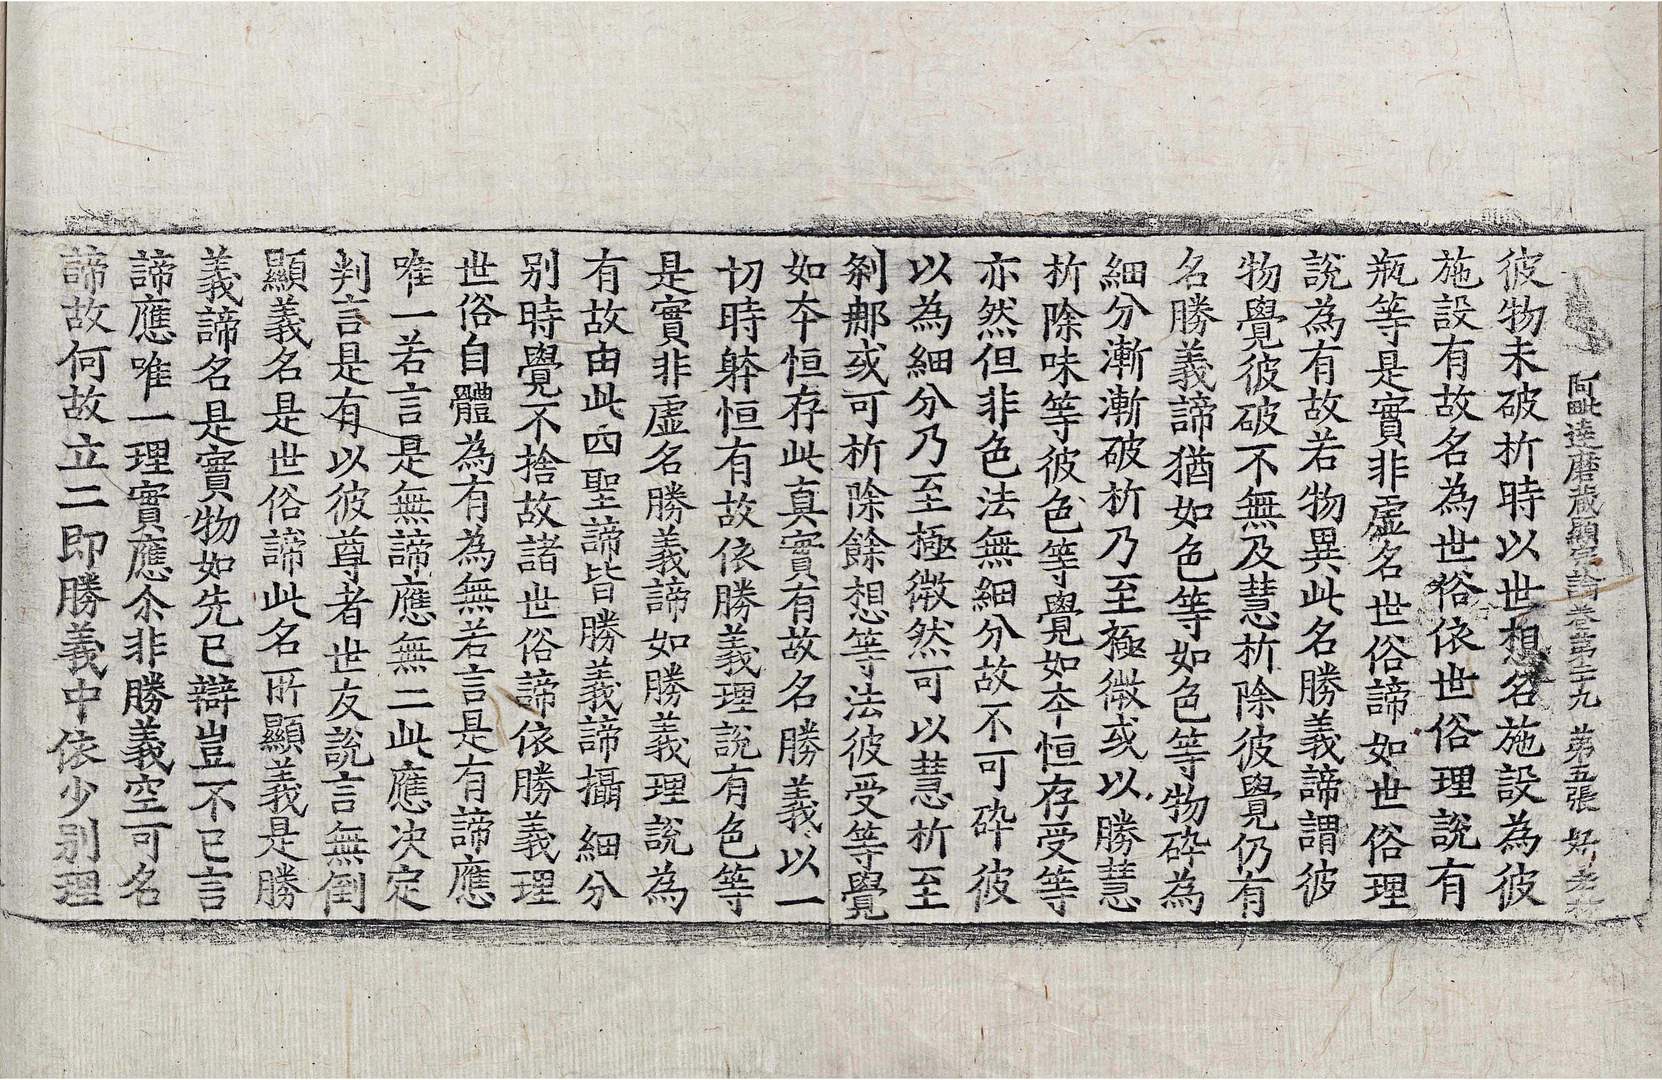 阿毗達磨藏顯宗論卷第二十九 第五張 好
彼物未破析時以世想名施設為彼
施設有故名為世俗依世俗理說有
瓶等是實非虛名世俗諦如世俗理
說為有故若物異此名勝義諦謂彼
物覺彼破不無及慧析除彼覺仍有
名勝義諦猶如色等如色等物碎為
細分漸漸破析乃至極微或以勝慧
析除味等彼色等覺如夲恒存受等
亦然但非色法無細分故不可碎彼
以為細分乃至極微然可以慧析至
剎那或可析除餘想等法彼受等覺
如夲恒存此真實有故名勝義以一
切時體恒有故依勝義理說有色等
是實非虛名勝義諦如勝義理說為
有故由此四聖諦皆勝義諦攝細分
別時覺不捨故諸世俗諦依勝義理
世俗自體為有為無若言是有諦應
唯一若言是無諦應無二此應決定
判言是有以彼尊者世友說言無倒
顯義名是世俗諦此名所顯義是勝
義諦名是實物如先已辯豈不已言
諦應唯一理實應尒非勝義空可名
諦故何故立二即勝義中依少別理